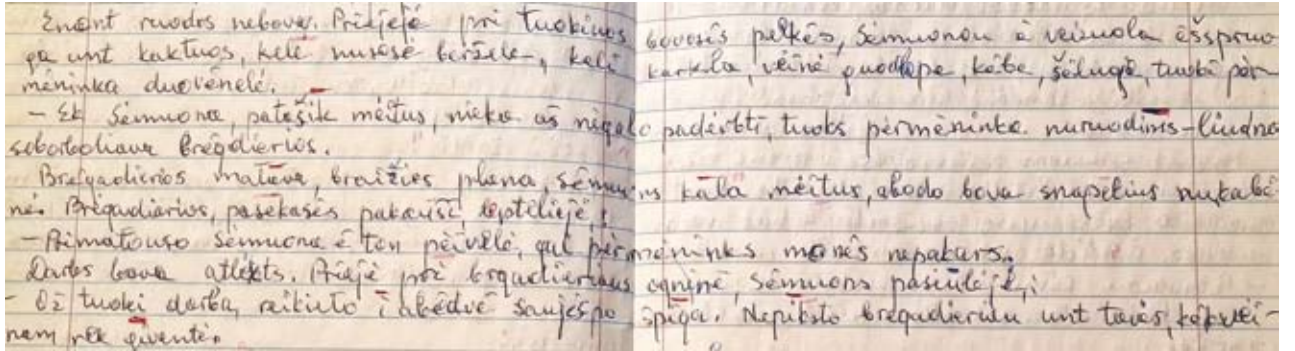 Enont ruodos nebova. Priejejė pri tuokinus bovosės pelkės, Semuonou ė veizuola ėššpruo
ga unt kaktuos, kelė nusosė beržele, kelė karkla, vėinė guodlepe, kėtė, šėlugė, tuobė pėr
mėninka duovėnelė.
– Ek Sėmuona, patašik mėitus, nieko aš nigalo padėrbti, tuoks pėrmėninka nuruodims – liudna
seborboliava brėgdierios.
Brėgadierios matava, braižies plana, sėmuons kala mėitus, abodo bova snapelius nukabė
nė. Brėgadiarius, pasekasės pakaušė, leptelieje:
– Primatouso Semuona ė ton pėivelė, gul pėrmėninks monės nepakars.
Darbs bova atlėkts. Priejė prė brgadierious ogninė, Sėmuons pasiulėjė:
– Ož tuoki darba, reikieto i abėdvė saujės po spiga. Nepiksto brėgadieriau unt tavės, kėkvėi–
nam rėk givente.